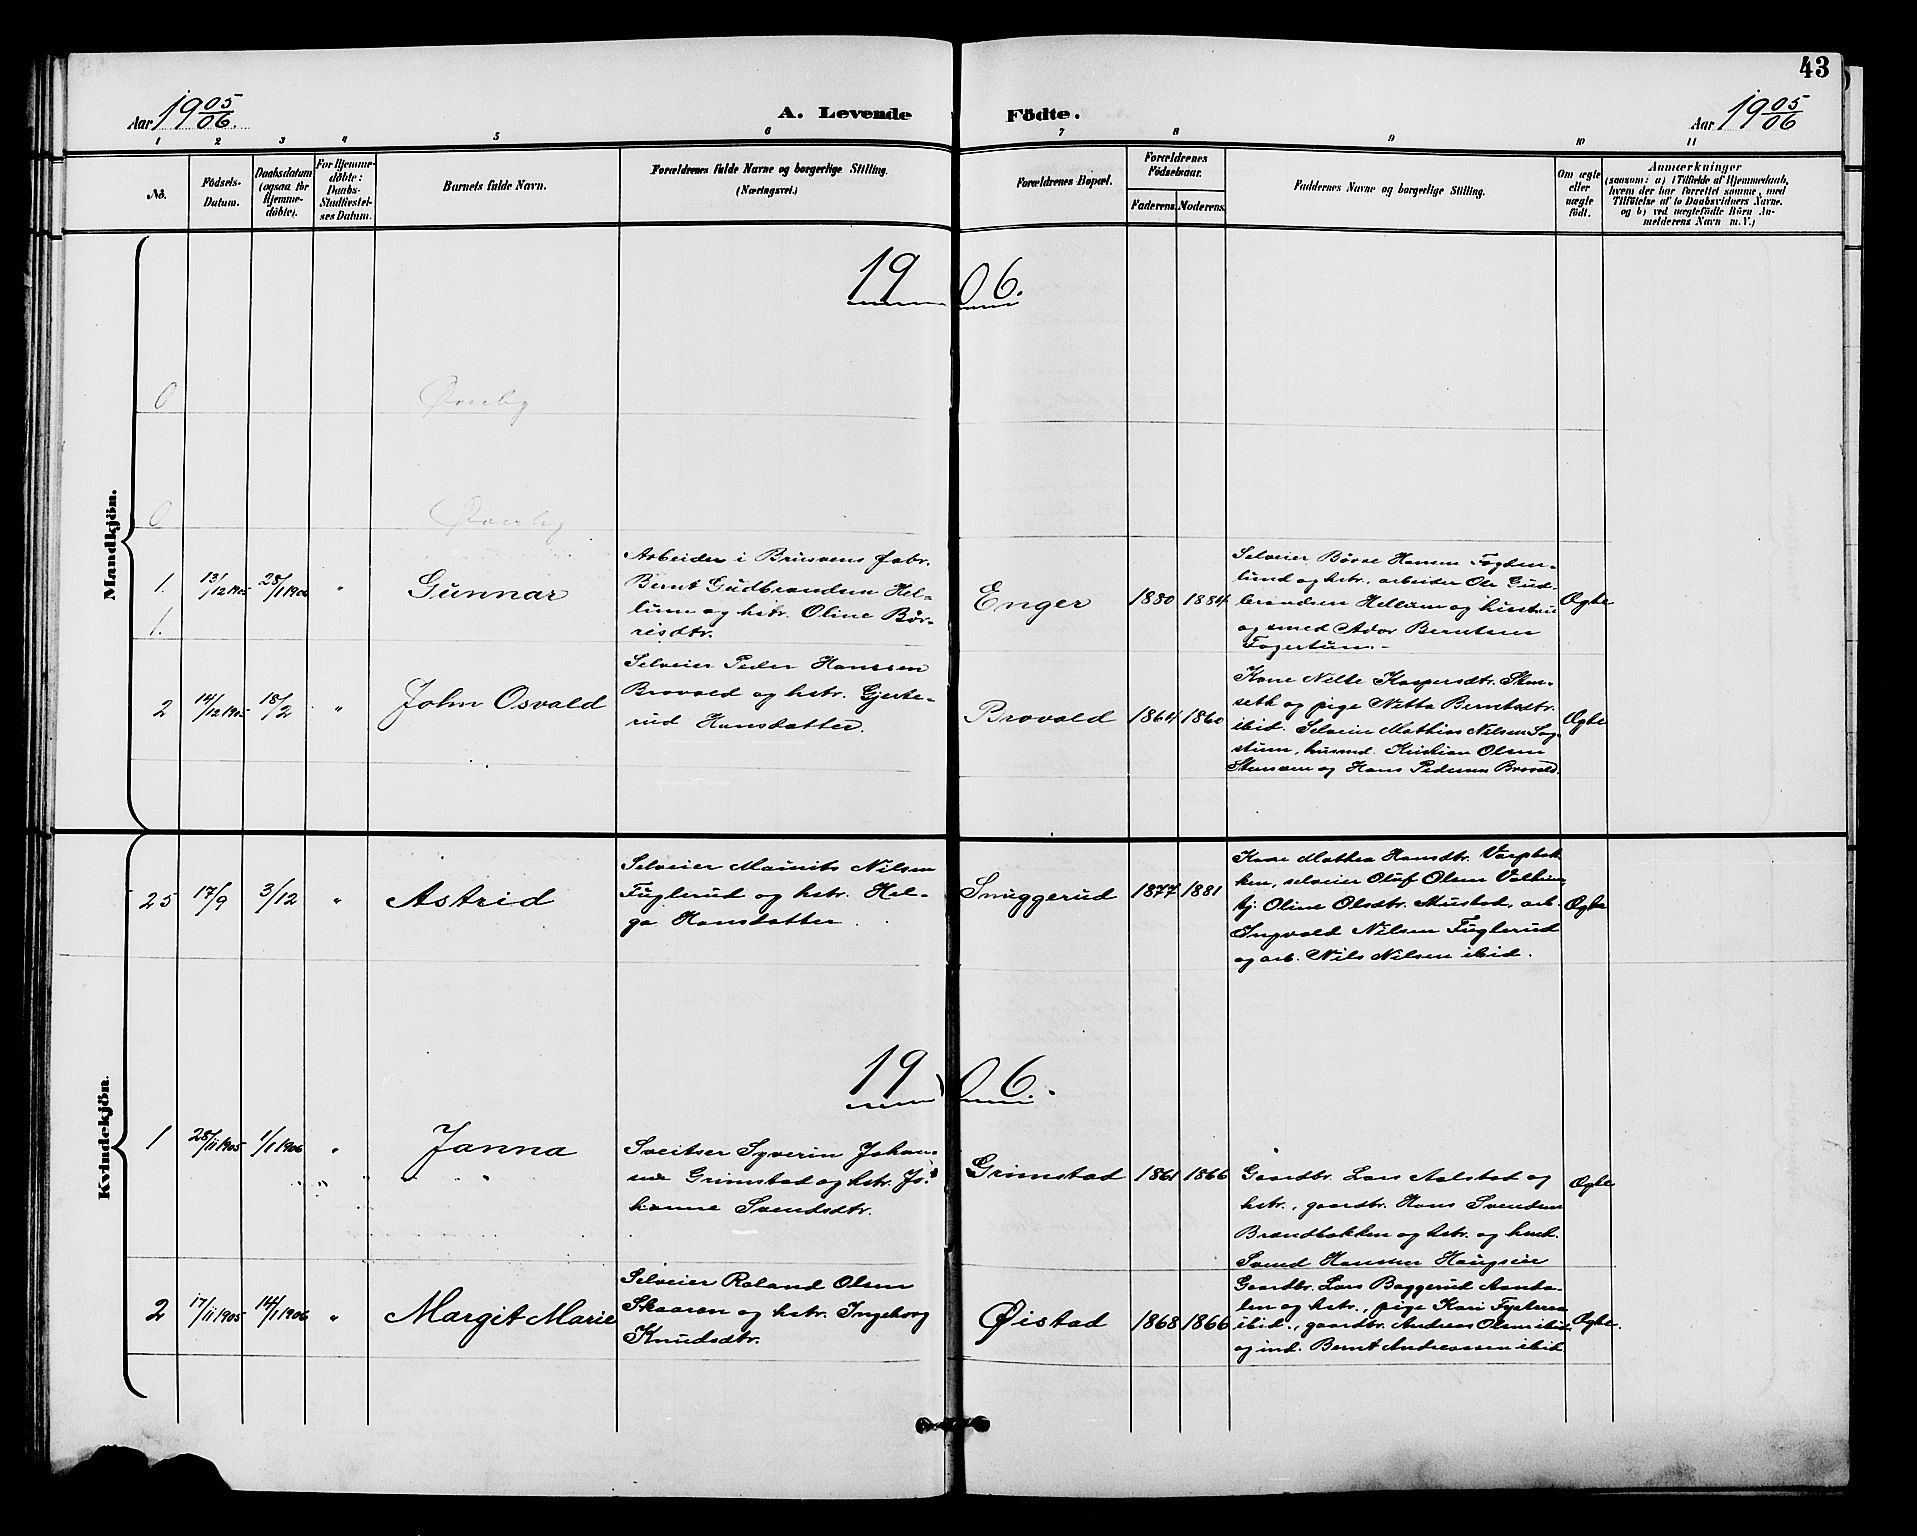 43
Aar 1905/06.
A. Levende Födte.
Aar 1905/06
1 2 3 4 5 6 7 8 9 10 11
No.
Födsels-Datum.
Daabsdatum (ogsaa for Hjemme-döbte).
For Hjemme-döbte: Daabs-Stadfæstel-ses Datum.
Barnets fulde Navn.
Forældrenes fulde Navne og borgerlige Stilling.
(Næringsvei.)
Forældrenes Bopæl.
Forældrenes Födselsaar.
Faderens Moderens.
Faddernes Navne og borgerlige Stilling.
Om ægte eller uægte födt.
Anmærkninger
(saasom: a) i Tilfælde af Hjemmedaab,
hvem der har forrettet samme, med
Tilföielse af to Daabsvidners Navne.
og b) ved uægtefödte Börn An-
melderens Navn m. V.)
Mandkjön.
1906.
0 Øverby
0 Øverby
1. 13/12 1905 28/1 1906 " Gunnar
1.
Arbeider i Brusvens fabr.
Bernt Gudbrandsen Hel-
lum og hstr. Oline Bør-
resdtr.
Enger 1880 1884
Selveier Børre Hansen Fogden-
lund og hstr., arbeider Ole Gud-
brandsen Hellum og hustru
og smed Ador Berntsen
Fagertun.-
Ægte
2 14/12 1905 18/2 " John Osvald
Selveier Peder Hanssen
Brovold og hstr. Gjerte-
rud Hansdatter.
Brovold 1864 1860
Kone Nille Kaspersdtr. Sten-
seth og pige Netta Berntsdtr.
ibid. Selveier Mathias Nilsen Sag-
stuen, husmd. Kristian Olsen
Stensen og Hans Pedersen Brovold.
Ægte
Kvindekjön.
25 17/9 3/12 " Astrid
Selveier Maurits Nilsen
Fuglerud og hstr. Hel-
ga Hansdatter.
Snuggerud 1877 1881
Kone Mathea Hansdtr. Varpbak-
ken, selveier Oluf Olsen
Oline Olsdtr. Mustad, arb.
Ingvald Nilsen Fuglerud
og arb. Nils Nilsen ibid.
Ægte
1906.
1 28/11 1905 1/1 1906 " Janna
Sveitser Syverin Johan-
sen Grimstad og hstr. Jo-
hanne Svendsdtr.
Grimstad 1861 1866
Gaardbr. Lars Aalstad og
hstr., gaardbr. Hans Svendsen
Brandbakken og hstr. og
Svend Hansen Haugseie
Ægte
2 17/11 1905 14/1 1906 " Margit Marie
Selveier Roland Olsen
Skaaren og hstr. Ingeborg
Knudsdtr.
Øistad 1868 1866
Gaardbr. Lars Baggerud Aanda-
len og hstr., pige Kari
ibid., gaardbr. Andreas Olsen ibid.
og ind. Bernt Andreassen ibid
Ægte.